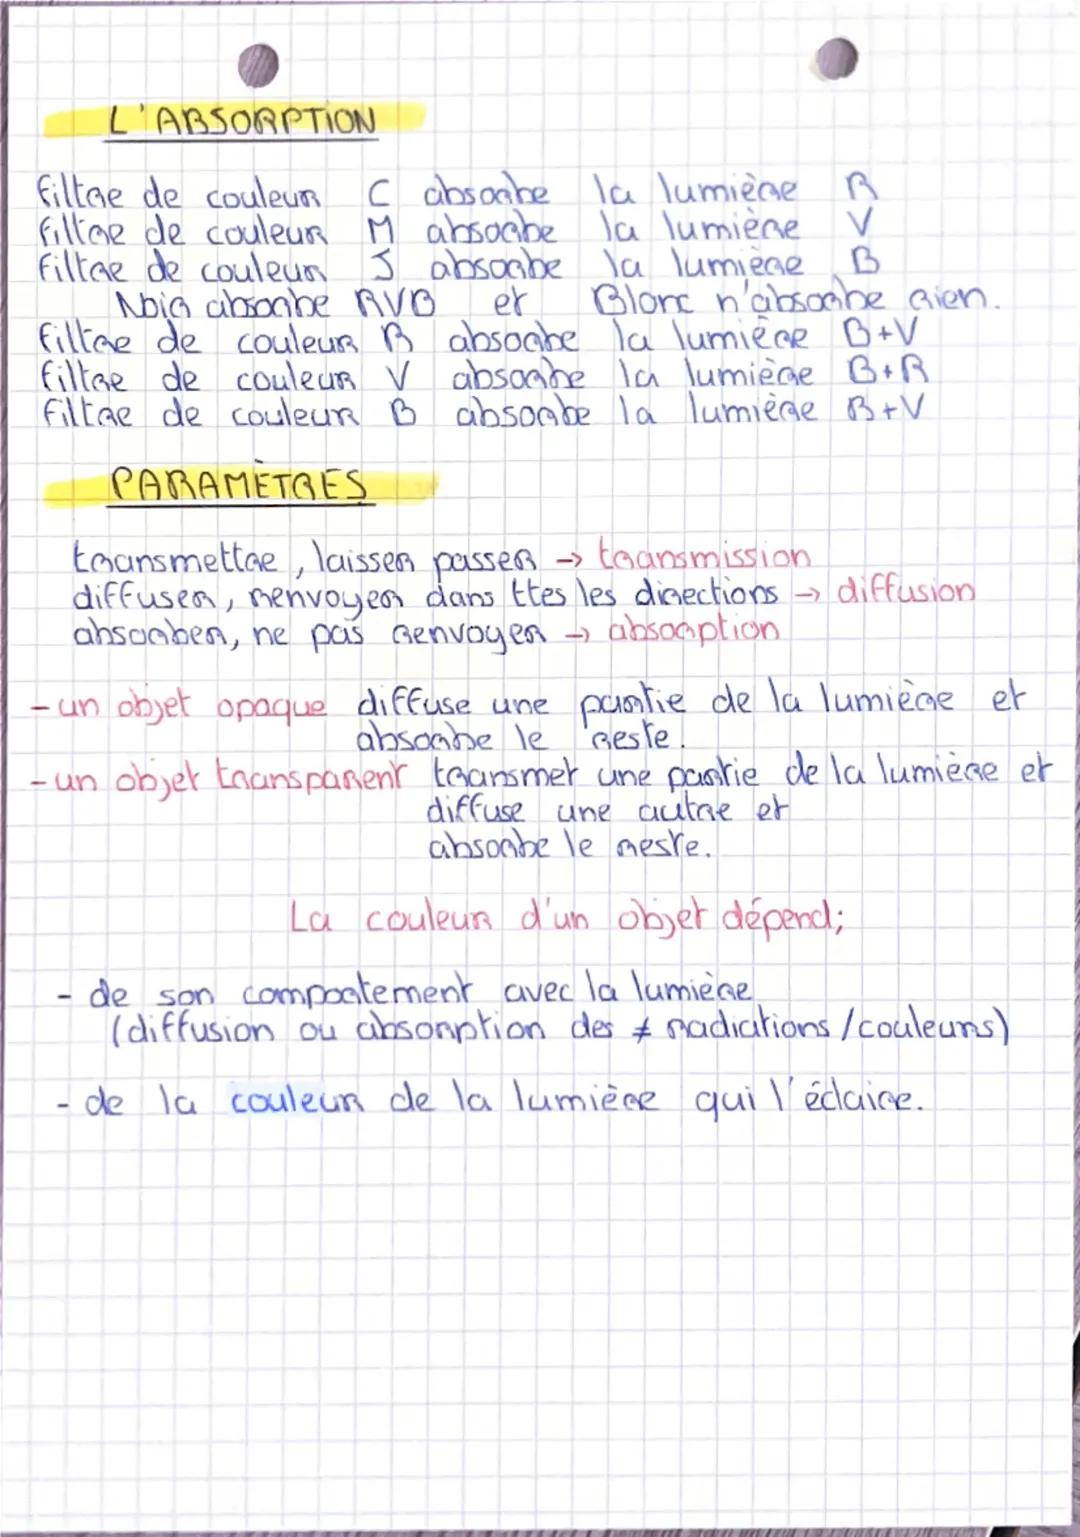 L'ABSORPTION
filtre de couleur C absorbe la lumière R
filtre de couleur M absorbe la lumière V
filtre de couleur J absorbe la lumière B
Noir absorbe RVB et Blanc n'absorbe rien.
filtre de couleur R absorbe la lumière B+V
filtre de couleur V absorbe la lumière B+R
filtre de couleur B absorbe la lumière R+V
PARAMÈTRES
transmettre, laisser passer → transmission
diffuser, renvoyer dans ttes les directions → diffusion
absorber, ne pas renvoyer → absorption
- un objet opaque diffuse une partie de la lumière et
absorbe le reste.
- un objet transparent transmet une partie de la lumière et
diffuse une autre et
absorbe le reste.
La couleur d'un objet dépend;
- de son comportement avec la lumière
(diffusion ou absorption des ≠ radiations / couleurs)
- de la couleur de la lumière qui l'éclaire.